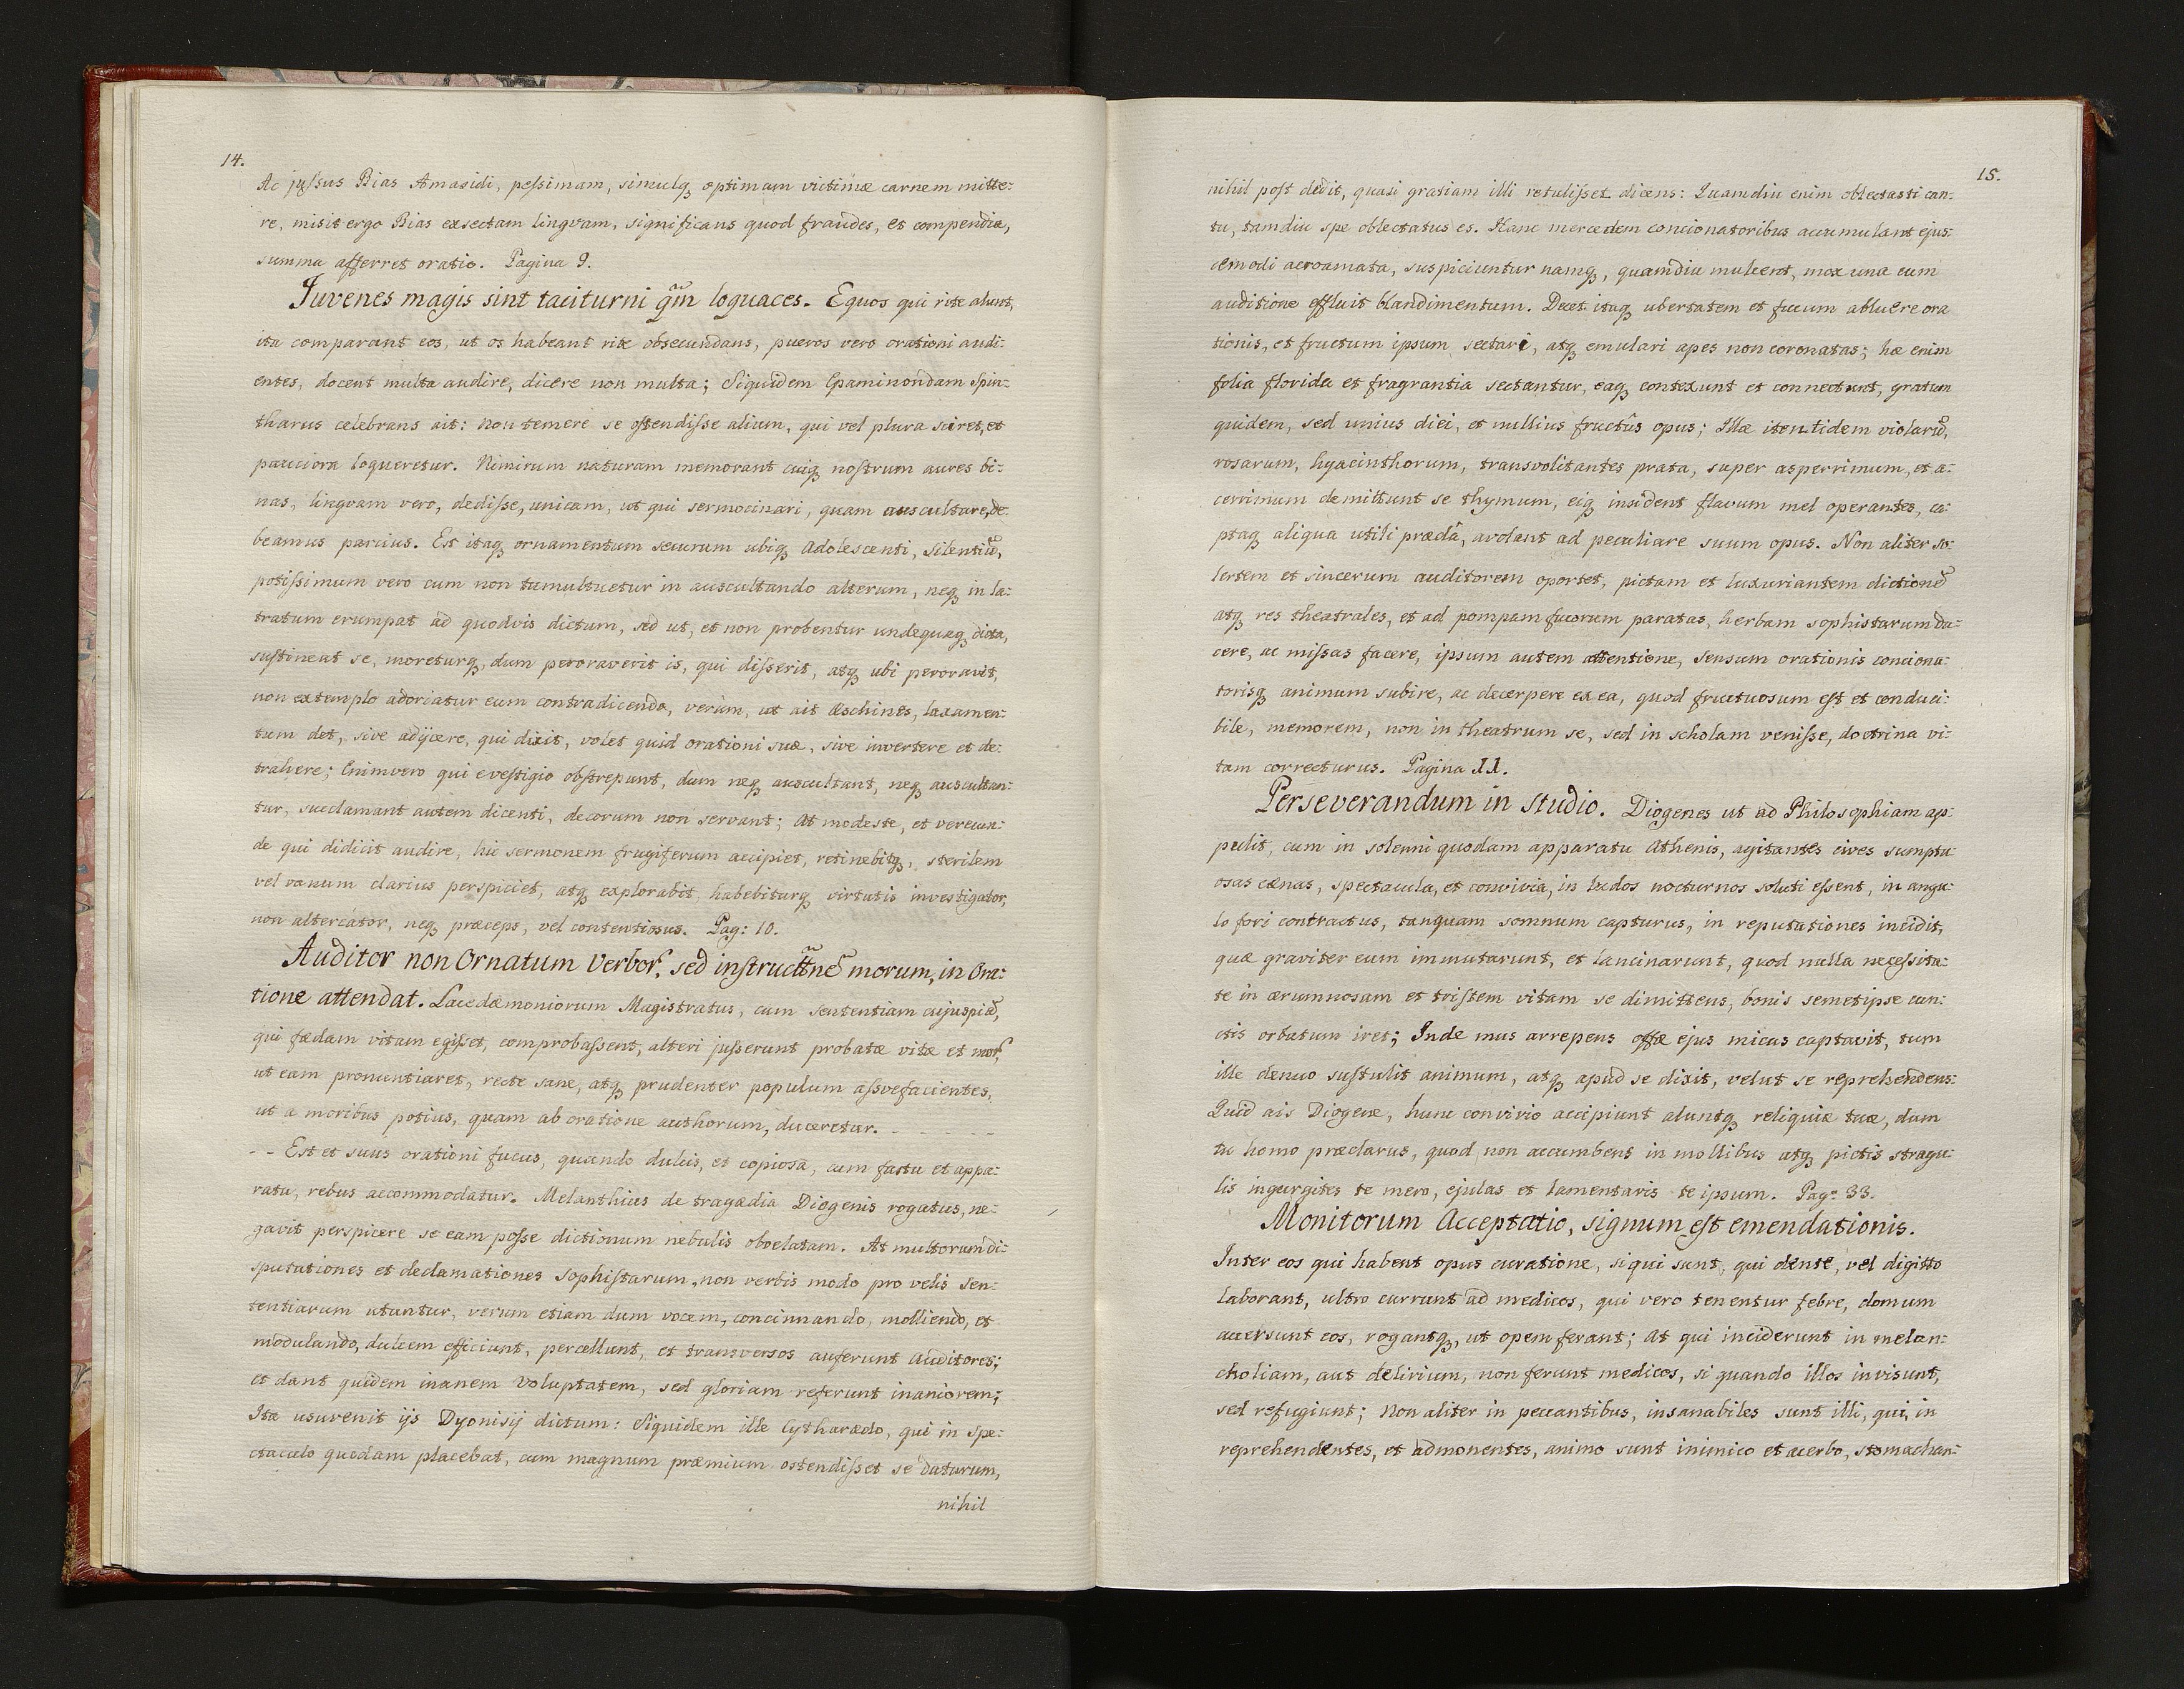 14.
Ac jussus Bias Amasidi, pessimam, simulq, optimam victimæ carnem mitte:
re, misit ergo Bias exsectam lingvam, significans quod fraudes, et compendia,
summa afferret oratio. Pagina 9.
Iuvenes magis sint taciturni qm̃ loquaces. Equos qui rite alunt,
ita comparant eos, ut os habeant rite obsecundans, pueros vero orationi audi:
entes, docent multa audire, dicere non multa; Siquidem Epaminondam Spin:
tharus celebrans ait: Non temere se ostendisse alium, qui vel plura sciret, et
pauciora loqueretur. Nimirum naturam memorant cuiq nostrum aures bi:
nas, lingvam vero, dedisse, unicam, ut qui sermocinari, quam auscultare, de
beamus parcius. Est itaq ornamentum securum ubiq Adolescenti, Silentiū,
potissimum vero cum non tumultuetur in auscultando alterum, neq in la:
tratum erumpat ad quodvis dictum, sed ut, et non probentur undequaq dicta,
sustineat se, moreturq, dum peroraverit is, qui disserit, atq ubi peroravit,
non extemplo adoriatur eum contradicendo, verùm, ut ait Æschines, laxamen:
tum det, sive adijcere, qui dixit, volet quid orationi suæ, sive invertere et de:
trahere; Enimvero qui evestigio obstrepunt, dum neq auscultant, neq auscultan:
tur, succlamant autem dicenti, decorum non servant; At modeste, et verecun:
de qui didicit audire, hic sermonem frugiferum accipiet, retinebitq, sterilem
vel vanum clarius perspiciet, atq explorabit, habebiturq virtutis investigator,
non altercator, neq præceps, vel contentiosus. Pag: 10.
Auditor non Ornatum Verbor, sed instructtnē morum, in Ora:
tione attendat. Lacedæmoniorum Magistratus, cum sententiam cujuspiā,
qui fædam vitam egisset, comprobassent, alteri jusserunt probatæ vitæ et mor,
ut eam pronuntiaret, recte sane, atq prudenter populum assvefacientes,
ut a moribus potius, quam ab oratione authorum, duceretur. - - - - -
- - Est et suus orationi fucus, quando dulcis, et copiosa, cum fastu et appa:
ratu, rebus accommodatur. Melanthius de tragædia Diogenis rogatus, ne:
gavit perspicere se eam posse dictionum nebulis obvelatam. At multorum di:
sputationes et declamationes Sophistarum, non verbis modo pro velis sen:
tentiarum utuntur, verum etiam dum vocem, concinnando, molliendo, et
modulando, dulcem efficiunt, percellunt, et transversos auferunt Auditores;
et dant quidem inanem voluptatem, sed gloriam referunt inaniorem;
Ita usuvenit ijs Dyonisij dictum: Siquidem ille Cytharædo, qui in spe:
ctaculo quodam placebat, cum magnum præmium ostendisset se daturum,
nihil
15.
nihil post dedit, quasi gratiam illi retulisset dicens: Quamdiu enim oblectasti can:
tu, tamdiu spe oblectatus es. Hanc mercedem concionatoribus accumulant ejus:
cemodi acroamata, suspiciuntur namq, quamdiu mulcent, mox una cum
auditione effluit blandimentum. Decet itaq ubertatem et fucum abluere ora
tionis, et fructum ipsum sectari, atq emulari apes non coronatas; hæ enim
folia florida et fragrantia sectantur, eaq contexunt et connectunt, gratum
quidem, sed unius diei, et nullius fructûs opus; Illæ itentidem violarū,
rosarum, hyacinthorum, transvolitantes prata, super asperrimum, et a:
cerrimum demittunt se thymum, eiq insident flavum mel operantes, ca:
ptaq aliqua utili prædâ, avolant ad peculiare suum opus. Non aliter so:
lertem et sincerum auditorem oportet, pictam et luxuriantem dictionē
atq res theatrales, et ad pompam fucorum paratas, herbam sophistarum du:
cere, ac missas facere, ipsum autem attentione, sensum orationis conciona:
torisq animum subire, ac decerpere ex ea, quod fructuosum est et conduci:
bile, memorem, non in theatrum se, sed in scholam venisse, doctrina vi:
tam correcturus. Pagina 11.
Perseverandum in studio. Diogenes ut ad Philosophiam ap:
pulit, cum in solenni quodam apparatu Athenis, agitantes cives sumptu
osas cænas, spectacula, et convivia, in ludos nocturnos soluti essent, in angu:
lo fori contractus, tanquam somnum capturus, in reputationes incidit,
quæ graviter eum immutarunt, et lancinarunt, quod nulla necessita:
te in ærumnosam et tristem vitam se dimittens, bonis semetipse cun:
ctis orbatum iret; Inde mus arrepens offæ ejus micas captavit, tum
ille denuo sustulit animum, atq apud se dixit, velut se reprehendens:
Quid ais Diogene, hunc convivio accipiunt aluntq reliquiæ tuæ, dum
tu homo præclarus, quod non accumbens in mollibus atq pictis stragu:
lis ingurgites te mero, ejulas et lamentaris te ipsum. Pag: 33.
Monitorum Acceptatio, signum est emendationis.
Inter eos qui habent opus curatione, siqui sunt, qui dente, vel digitto
laborant, ultro currunt ad medicos, qui vero tenentur febre, domum
accersunt eos, rogantq, ut opem ferant; At qui inciderunt in melan:
choliam, aut delirium, non ferunt medicos, si quando illos invisunt,
sed refugiunt; Non aliter in peccantibus, insanabiles sunt illi, qui, in
reprehendentes, et admonentes, animo sunt inimico et acerbo, stomachan: